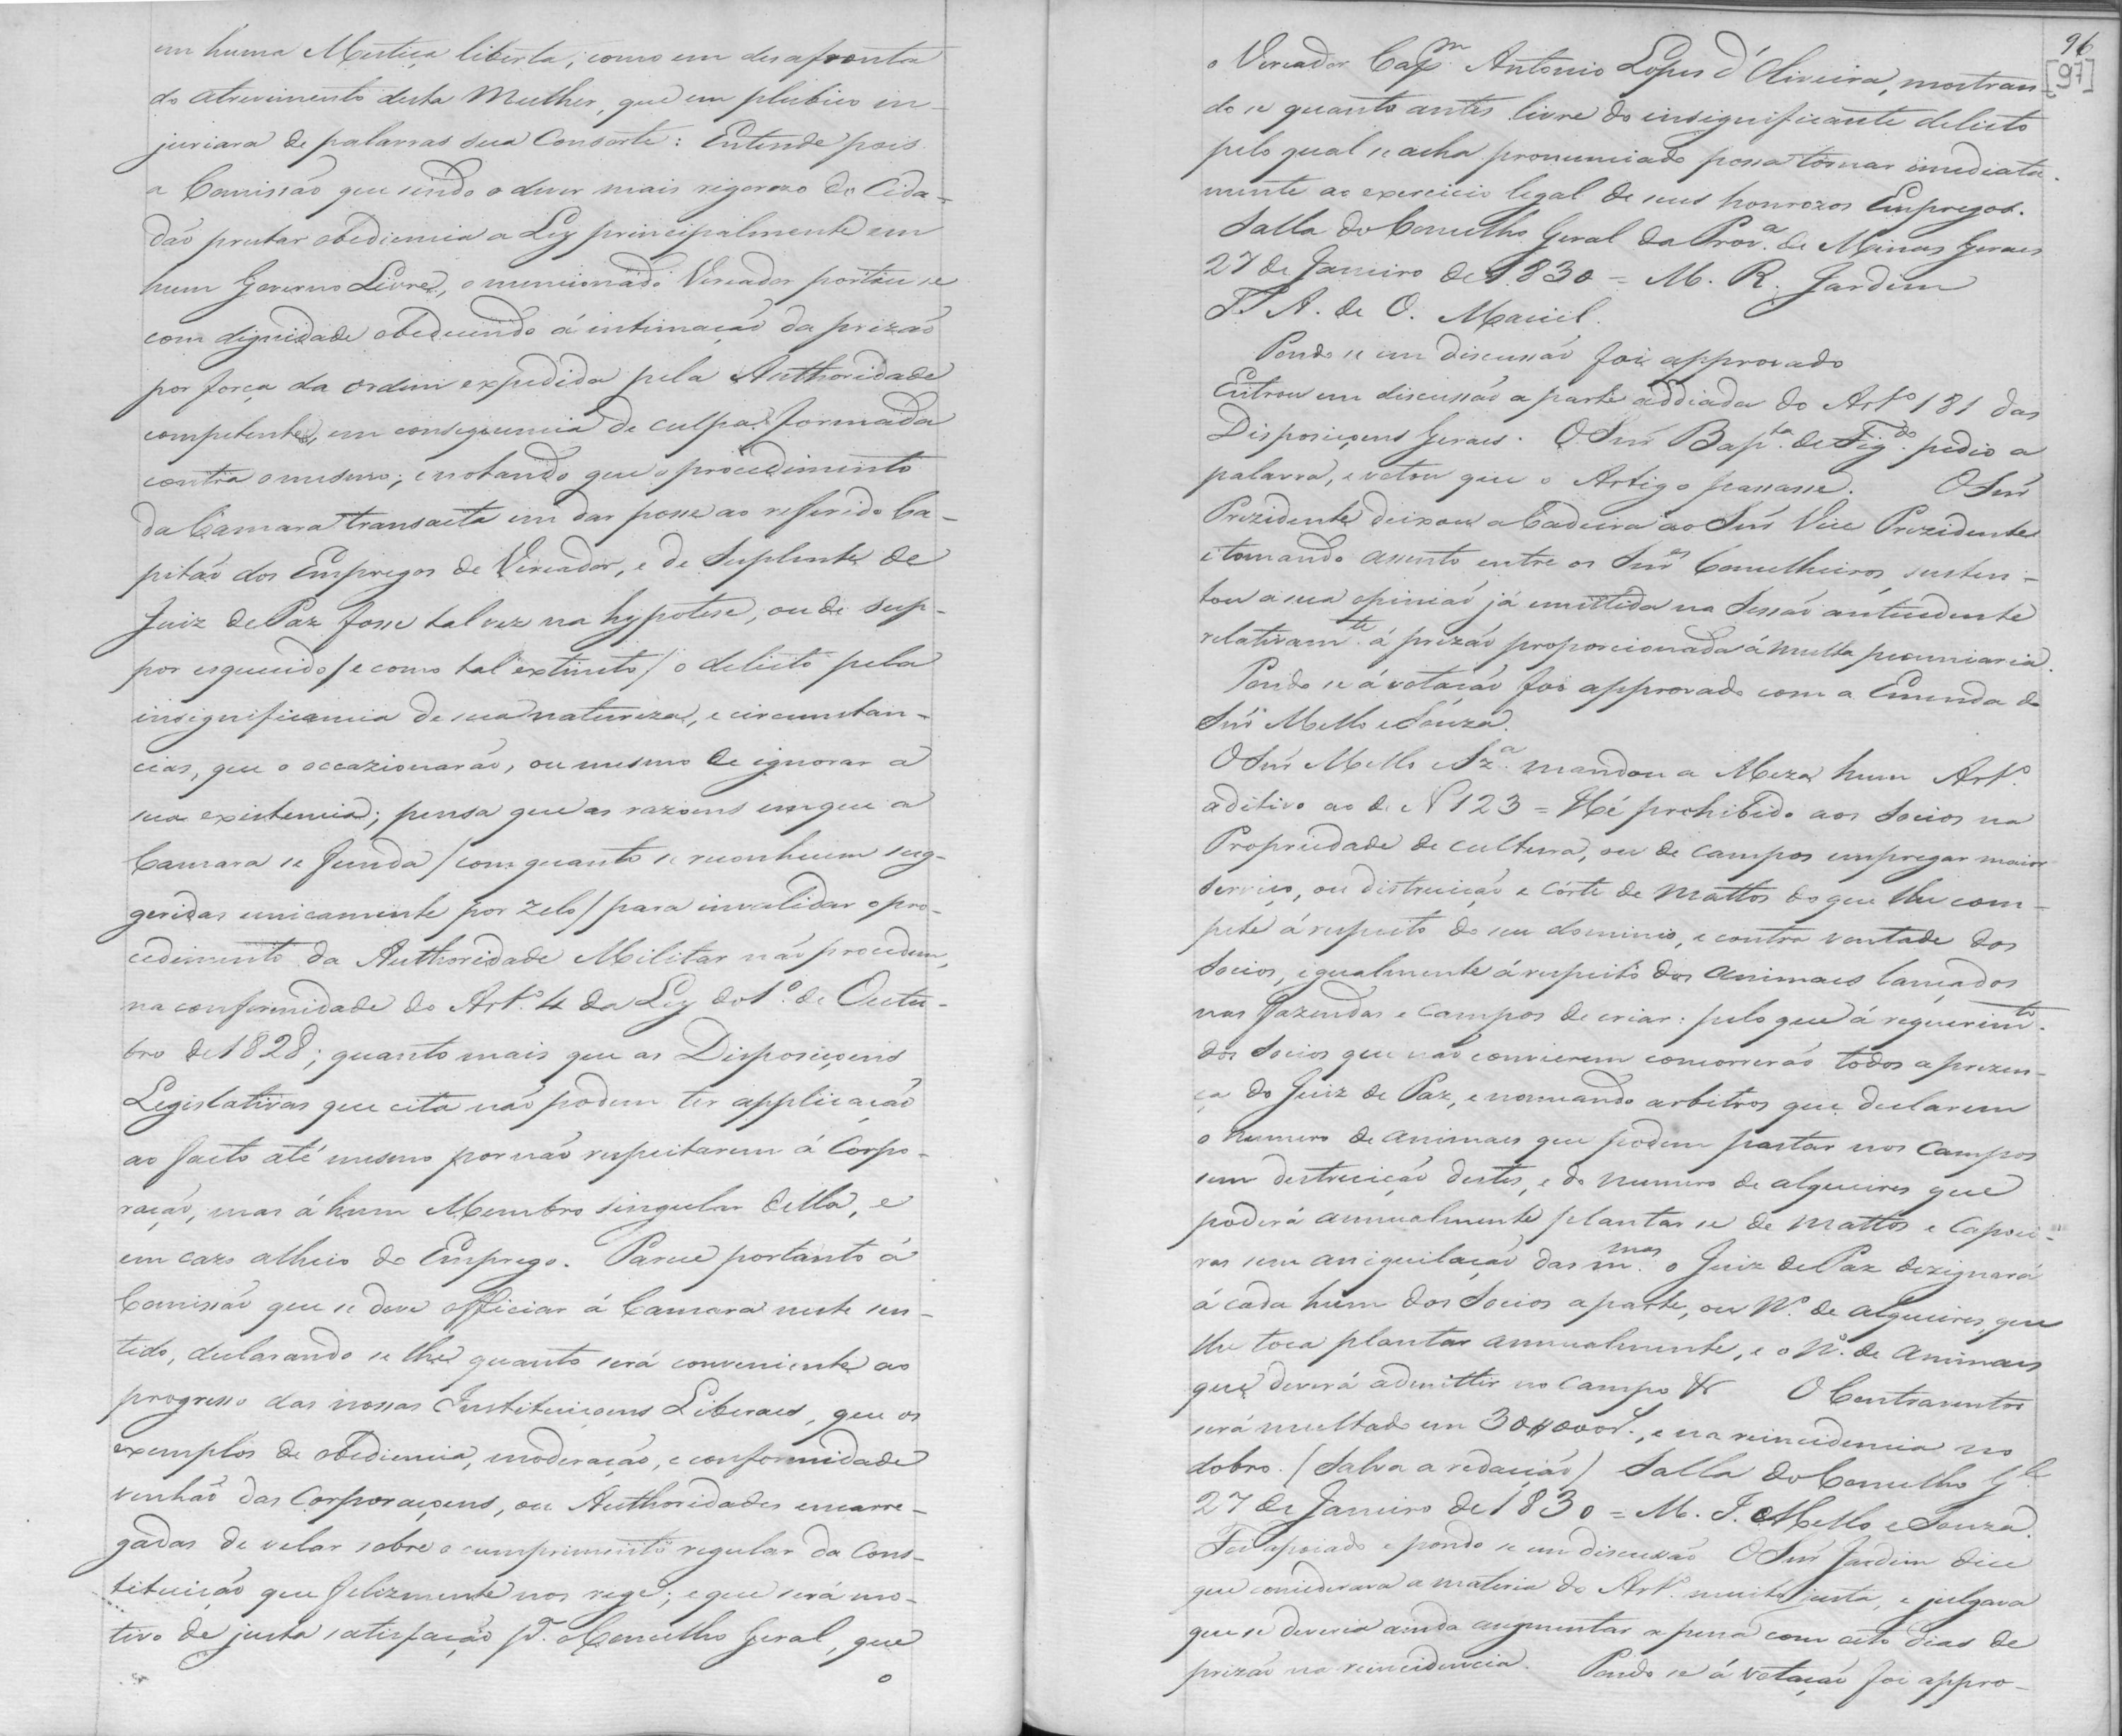 em huma Mestiça liberta, como em desafronta
do atrevimento desta Mulher, que em plubico in-
juriara de palavras sua Consorte: Entende pois
a Comissão que sendo o dever mais rigorozo do Cida-
dão prestar obediencia a Ley principalmente em
hum Governo Livre, o mencionado Vereador portou se
com dignidade obedecendo á intimação da prizão
por força da ordem expedida pela Authoridade
competente, em consequencia de culpa formada
contra o mesmo; e notando que o procedimento
da Camara transacta em dar posse ao referido Ca-
pitão dos Empregos de Vereador, e de Suplente de
Juiz de Paz fosse talvez na hypotese, ou de sup-
por esquecido / e como tal extincto / o delicto pela
insignificancia de sua natureza, e circumstan-
cias, que o occazionarão, ou mesmo de ignorar a
sua existencia; pensa que as razoens em que a
Camara se funda / com quanto se reconhecem sug-
geridas unicamente por zelo / para invalidar o pro-
cedimento da Authoridade Militar não procedem,
na conformidade do Art.º 4 da Ley do 1.º de Outu-
bro de 1828; quanto mais que as Disposiçoens
Legislativas que cita não podem ter applicação
ao facto até mesmo por não respeitarem á Corpo-
ração, mas á hum Membro singular della, e
em cazo alheio do Emprego. Parece portanto á
Comissão que se deve officiar á Camara neste sen-
tido, declarando se lhe quanto será conveniente ao
progresso das nossas Instituiçoens Liberaes, que os
exemplos de obediencia, moderação, e conformidade
venhão das Corporaçoens, ou Authoridades encarre-
gadas de velar sobre o cumprimento regular da Cons-
tituição que felizmente nos rege; e que será mo-
tivo de justa satisfação p.ª o Concelho Geral, que
o
96
[97]
o Vereador Cap.m Antonio Lopes d'Oliveira, mostran-
do se quanto antes livre do insignificante delicto
pelo qual se acha pronunciado possa tornar imediata-
mente ao exercicio legal de seus honrozos Empregos.
Salla do Concelho Geral da Prov.a de Minas Geraes
27 de Janeiro de 1830 = M. R. Jardim
T. A. de O. Maciel.
Pondo se em discussão foi approvado
Entrou em discussão a parte addiada do Art.º 181 das
Disposiçoens Geraes. O Snr Bap.ta de Fig.do pedio a
palavra, e votou que o Artigo passasse. O Snr
Prezidente deixou a Cadeira ao Snr Vice Prezidente
e tomando assento entre os Snr.es Concelheiros susten-
tou a sua opinião já emittida na Sessão antecedente
relativam.te á prizão proporcionada á multa pecuniaria.
Pondo se á votação foi approvado com a Emenda do
Snr Mello e Souza.
O Snr Mello e Sz.a mandou a Meza hum Art.º
aditivo ao de N 123 = Hé prohibido aos Socios na
Propriedade de cultura, ou de campos empregar maior
serviço, ou distruição e córte de mattos do que lhe com-
pete á respeito do seu dominio, e contra vontade dos
Socios, egualmente á respeito dos animaes lançados
nas fazendas e campos de criar: pelo que á requerim.to
dos Socios que não convierem concorrerão todos a prezen-
ça do Juiz de Paz, e nomeando arbitros que declarem
o numero de animaes que podem pastar nos campos
sem destruição destes, e do numero de alqueires que
poderá annualmente plantar se de mattos e Capoei-
ras sem aniquilação das m.mas o Juiz de Paz dezignará
á cada hum dos Socios a parte, ou N.º de alqueires, que
lhe toca plantar annualmente, e o N.º de animaes
que deverá admittir no campo & O Contraventor
será multado em 30$000r., e na reincidencia no
dobro. (Salva a redacção) Salla do Concelho G.l
27 de Janeiro de 1830 = M. J. Mello e Souza.
Foi apoiado e pondo se em discussão O Snr Jardim dice
que considerava a materia do Art.º muito justa, e julgava
que se deveria ainda augmentar a pena com oito dias de
prizão na reincidencia. Pondo se á votação foi appro-